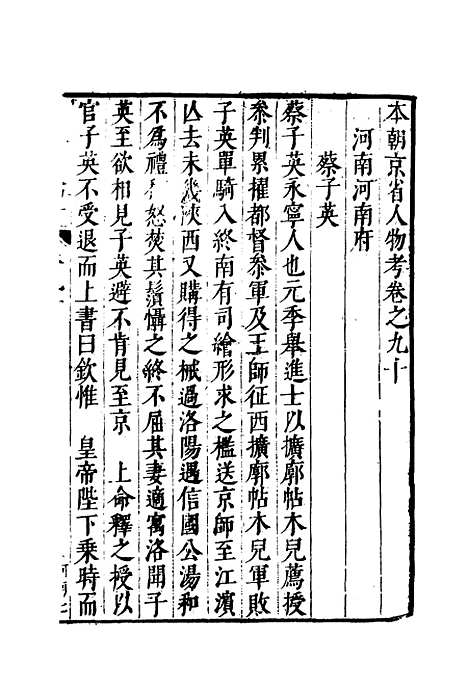 本朝京省人物考卷之九十
河南河南府
蔡子英
蔡子英永寧人也元季舉進士以擴廓帖木兒薦授
叅判累擢都督叅軍及王師征西擴廓帖木兒軍敗
子英單騎入終南有司繪形求之檻送京師至江濱
亾去未幾陜西又購得之械過洛陽遇信國公湯和
不爲禮 怒焚其鬚懾之終不屈其妻適寓洛聞子
英至欲相見子英避不肯見至京 上命釋之授以
官子英不受退而上書曰欽惟 皇帝陛下乗時而